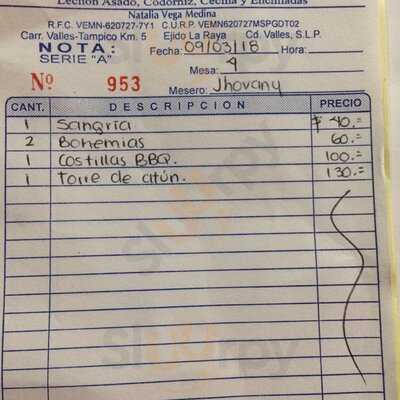 Lechón Asado, Codorniz, Cecina y Enchiladas
Natalia Vega Medina
R.F.C. VEMN-620727-7Y1 C.U.R.P. VEMN620727MSPGDT02
Carr. Valles-Tampico Km. 5 Ejido La Raya Cd. Valles, S.L.P.
NOTA: Fecha: 09/03/18 Hora:
SERIE "A" Mesa: 4
Nº 953 Mesero: Jhovany
CANT. DESCRIPCION PRECIO
1 Sangria $ 40.=
2 Bohemias 60.=
1 Costillas BBQ. 100.=
1 Torre de atún. 130.=
Sluurpy
Sluurpy
Sluurpy